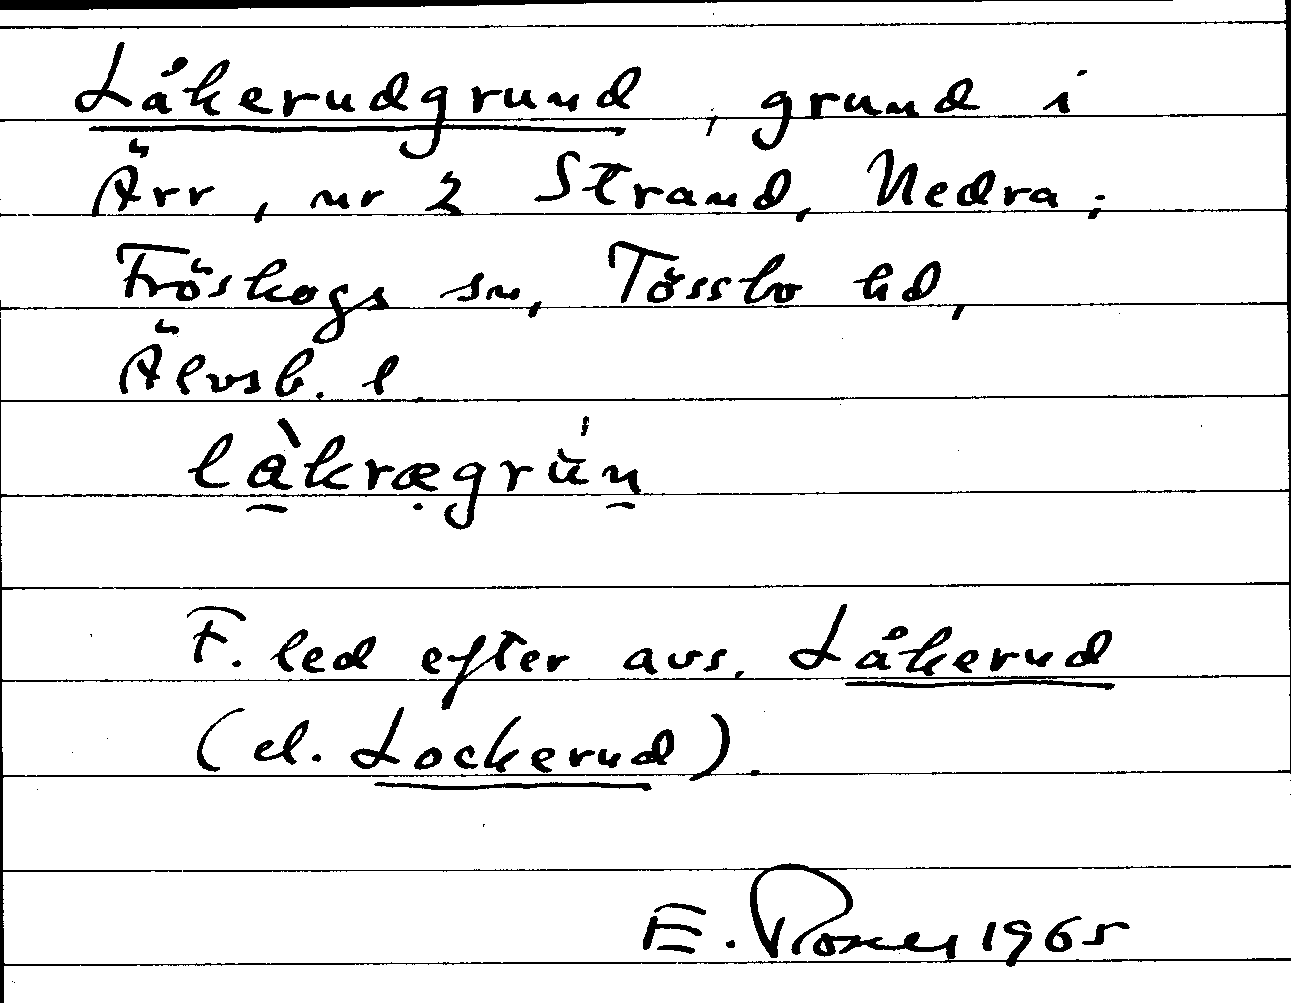 Låkerudgrund, grund i
Ärr, nr 2 Strand, Nedra;
Fröskogs sn, Tössbo hd,
Älvsb. l.
làkrægrùn
F. led efter avs. Låkerud
(el. Lockerud).
E. 1965